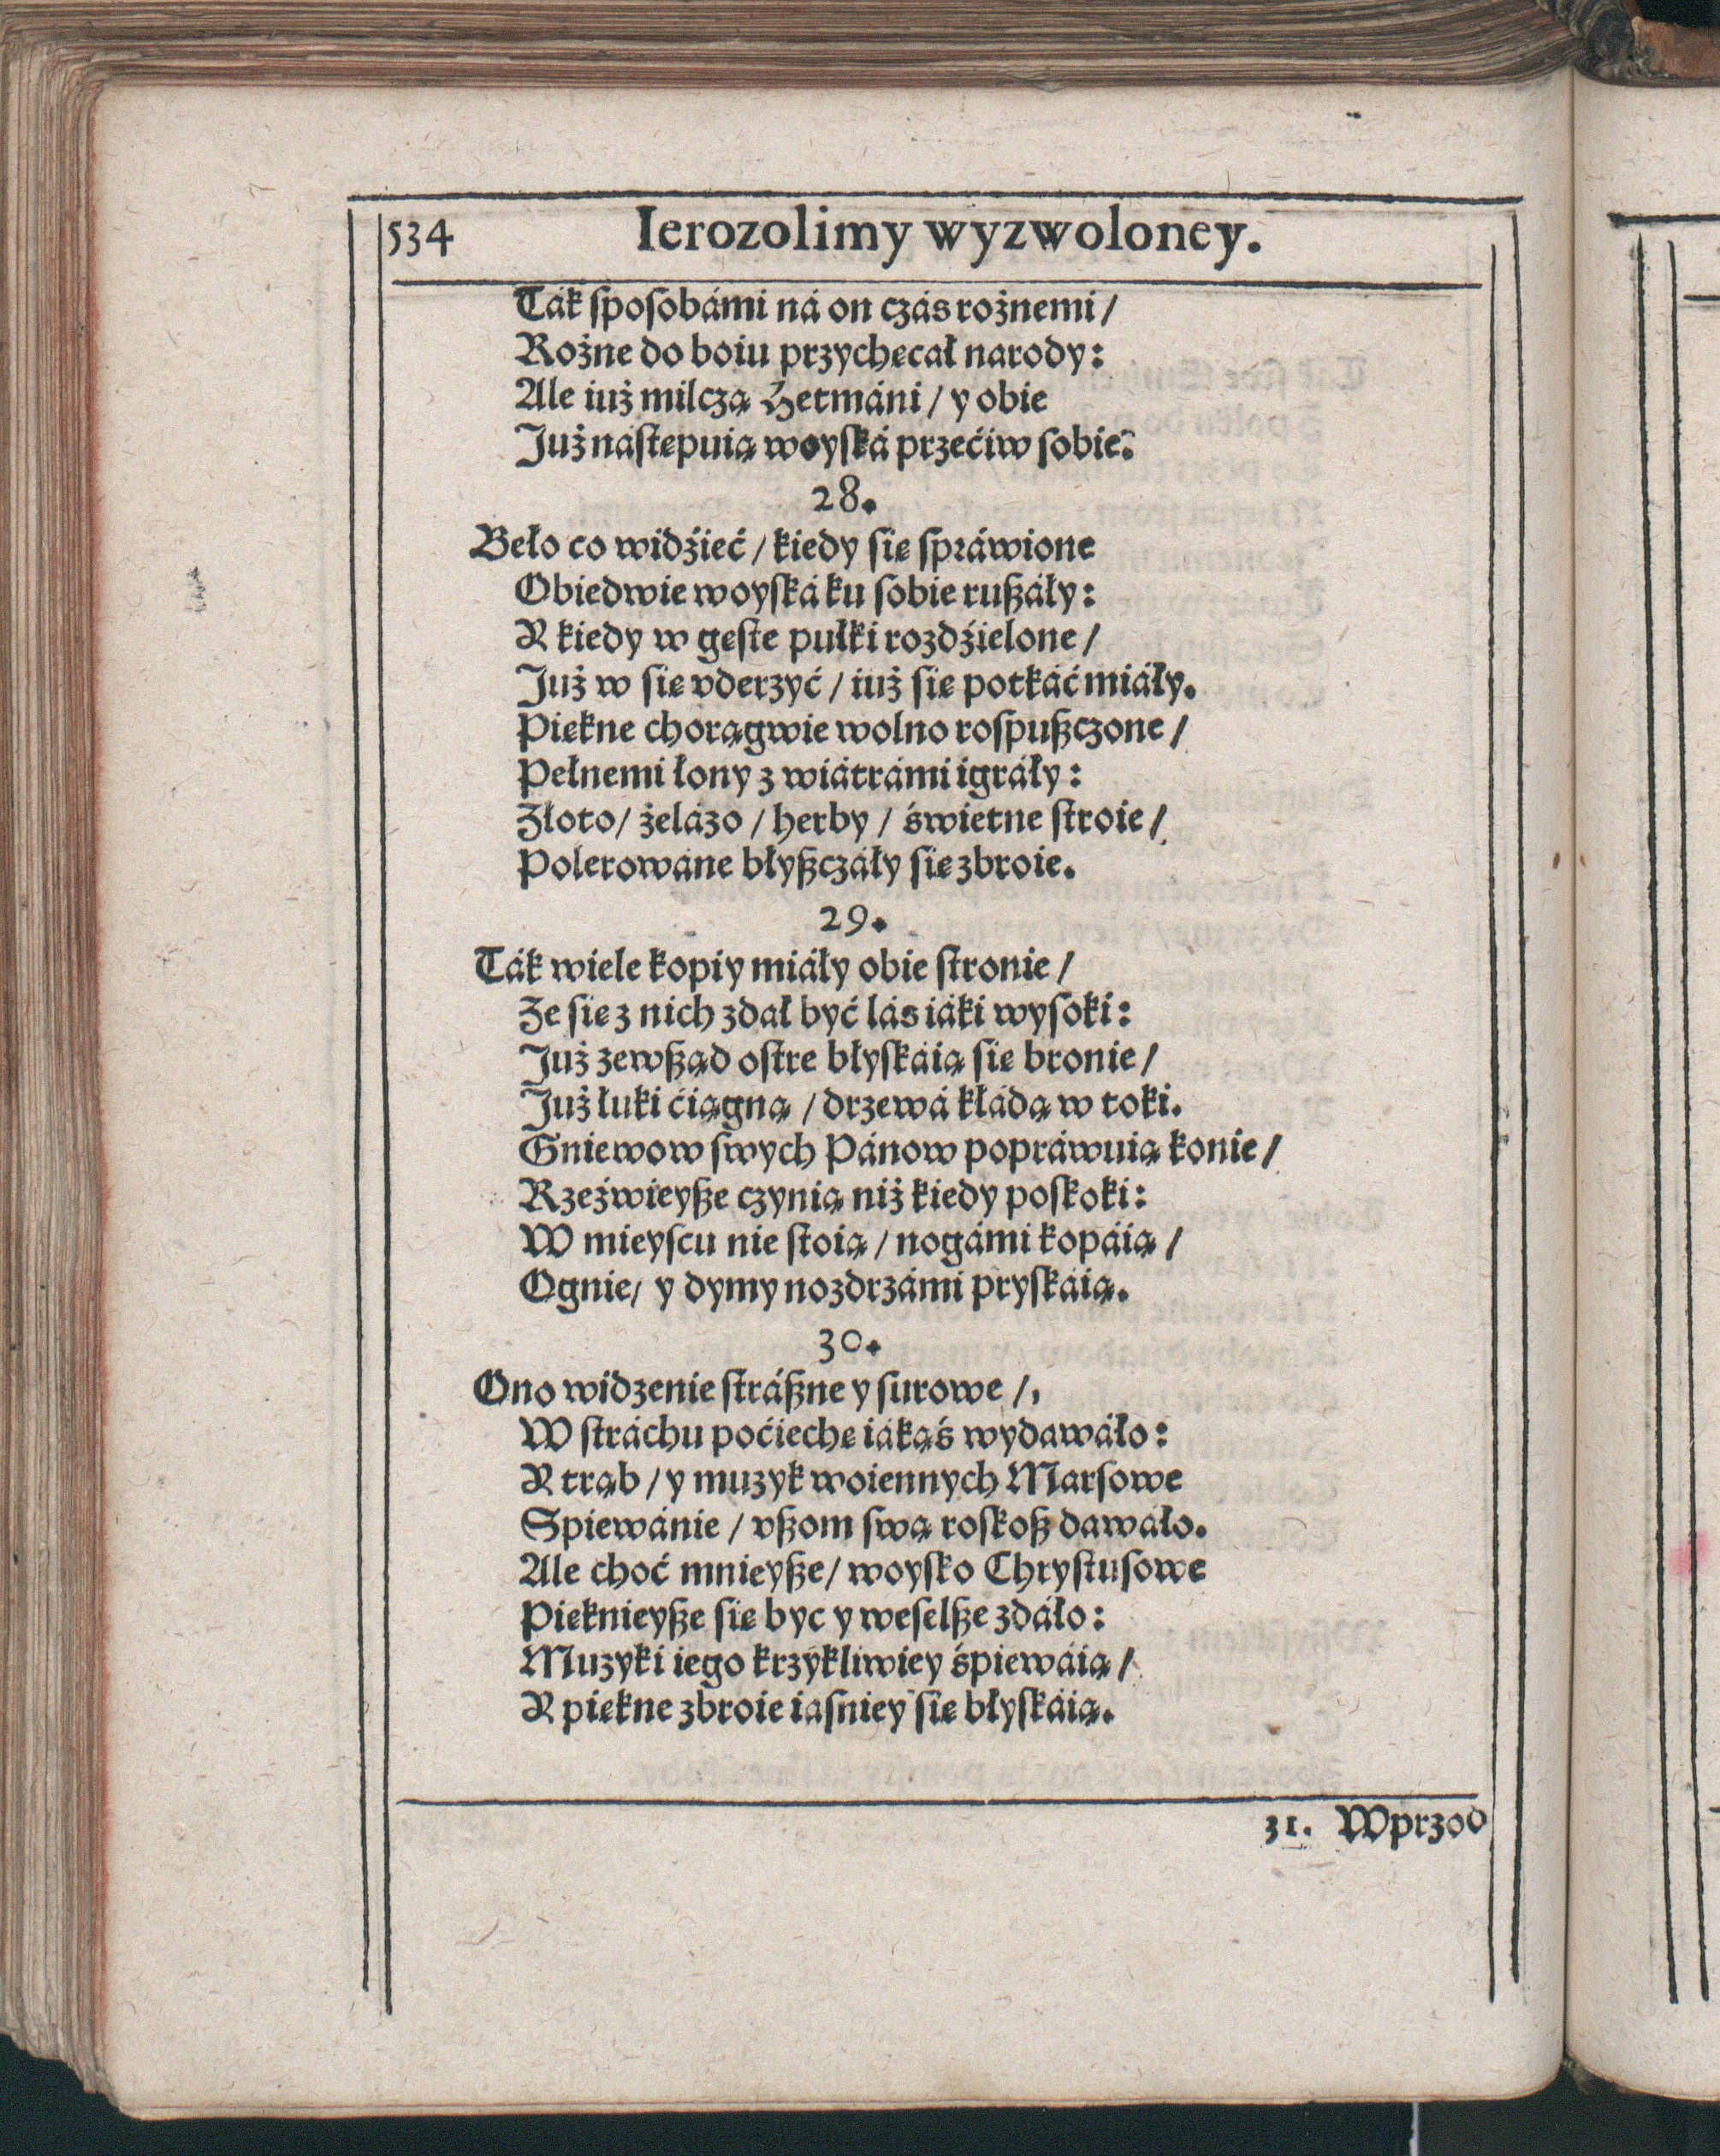 534 Ierozolimy wyzwoloney.
Ták ſpoſobámi ná on czás rożnemi /
Rożne do boiu przychęcał narody:
Ale iuż milczą Hetmáni / y obie
Już náſtępuią woyſká przećiw ſobie.
28.
Beło co widźieć / kiedy ſię ſpráwione
Obiedwie woyſká ku ſobie rußáły:
Y kiedy w gęſte pułki rozdźielone /
Już w ſię vderzyć / iuż ſię potkáć miáły.
Piękne chorągwie wolno roſpußczone /
Pełnemi łony z wiátrámi igráły:
Złoto / żelázo / herby / świetne ſtroie /
Polerowáne błyßczáły ſię zbroie.
29.
Ták wiele kopiy miáły obie ſtronie /
Że ſię z nich zdał być lás iáki wyſoki:
Już zewßąd oſtre błyſkáią ſię bronie /
Już łuki ćiągną / drzewá kłádą w toki.
Gniewow ſwych Pánow popráwuią konie /
Rzeźwieyße czynią niż kiedy poſkoki:
W mieyſcu nie ſtoią / nogámi kopáią /
Ognie / y dymy nozdrzámi pryſkáią.
30.
Ono widzenie ſtráßne y ſurowe /,
W ſtráchu poćiechę iákąś wydawáło:
Y trąb / y muzyk woiennych Marſowe
Spiewánie / vßom ſwą roſkoß dawáło.
Ale choć mnieyße / woyſko Chryſtuſowe
Pięknieyße ſię byc y weſelße zdáło:
Muzyki iego krzykliwiey śpiewáią /
Y piękne zbroie iáſniey ſię błyſkáią.
31. Wprzod